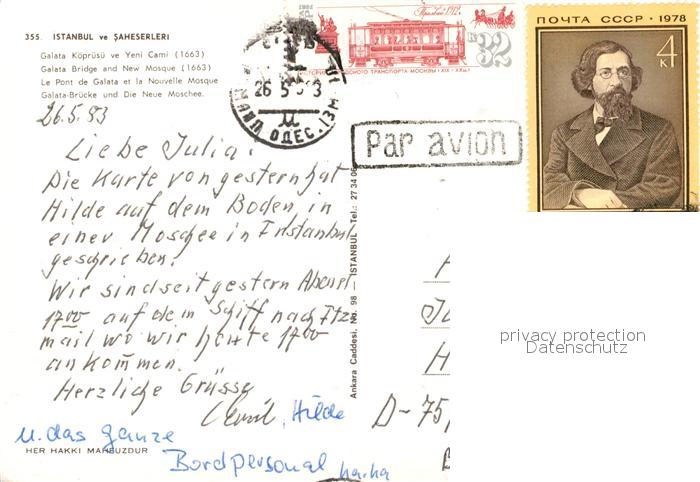 355 ISTANBUL ve ŞAHESERLERİ
Galata Köprüsü ve Yeni Cami (1663)
Galata Bridge and New Mosque (1663)
Le Pont de Galata et la Nouvelle Mosque
Galata-Brücke und Die Neue Moschee.
26.5.83
Liebe Julia!
Die Karte von gestern hat
Hilde auf dem Boden in
einer Moschee in Istanbul
geschrieben.
Wir sind seit gestern Abend
1700 auf dem Schiff nach
mail wo wir heute 1700
ankommen.
Herzliche Grüsse
Hilde
u. das ganze
Bordpersonal ha.ha
HER HAKKI MAHFUZDUR
Ankara Caddesi, No. 98 ISTANBUL - Tel.: 27 34 06
32
26 5
ОДЕС.
Par avion
ПОЧТА СССР · 1978
4
К
privacy protection
Datenschutz
D-75